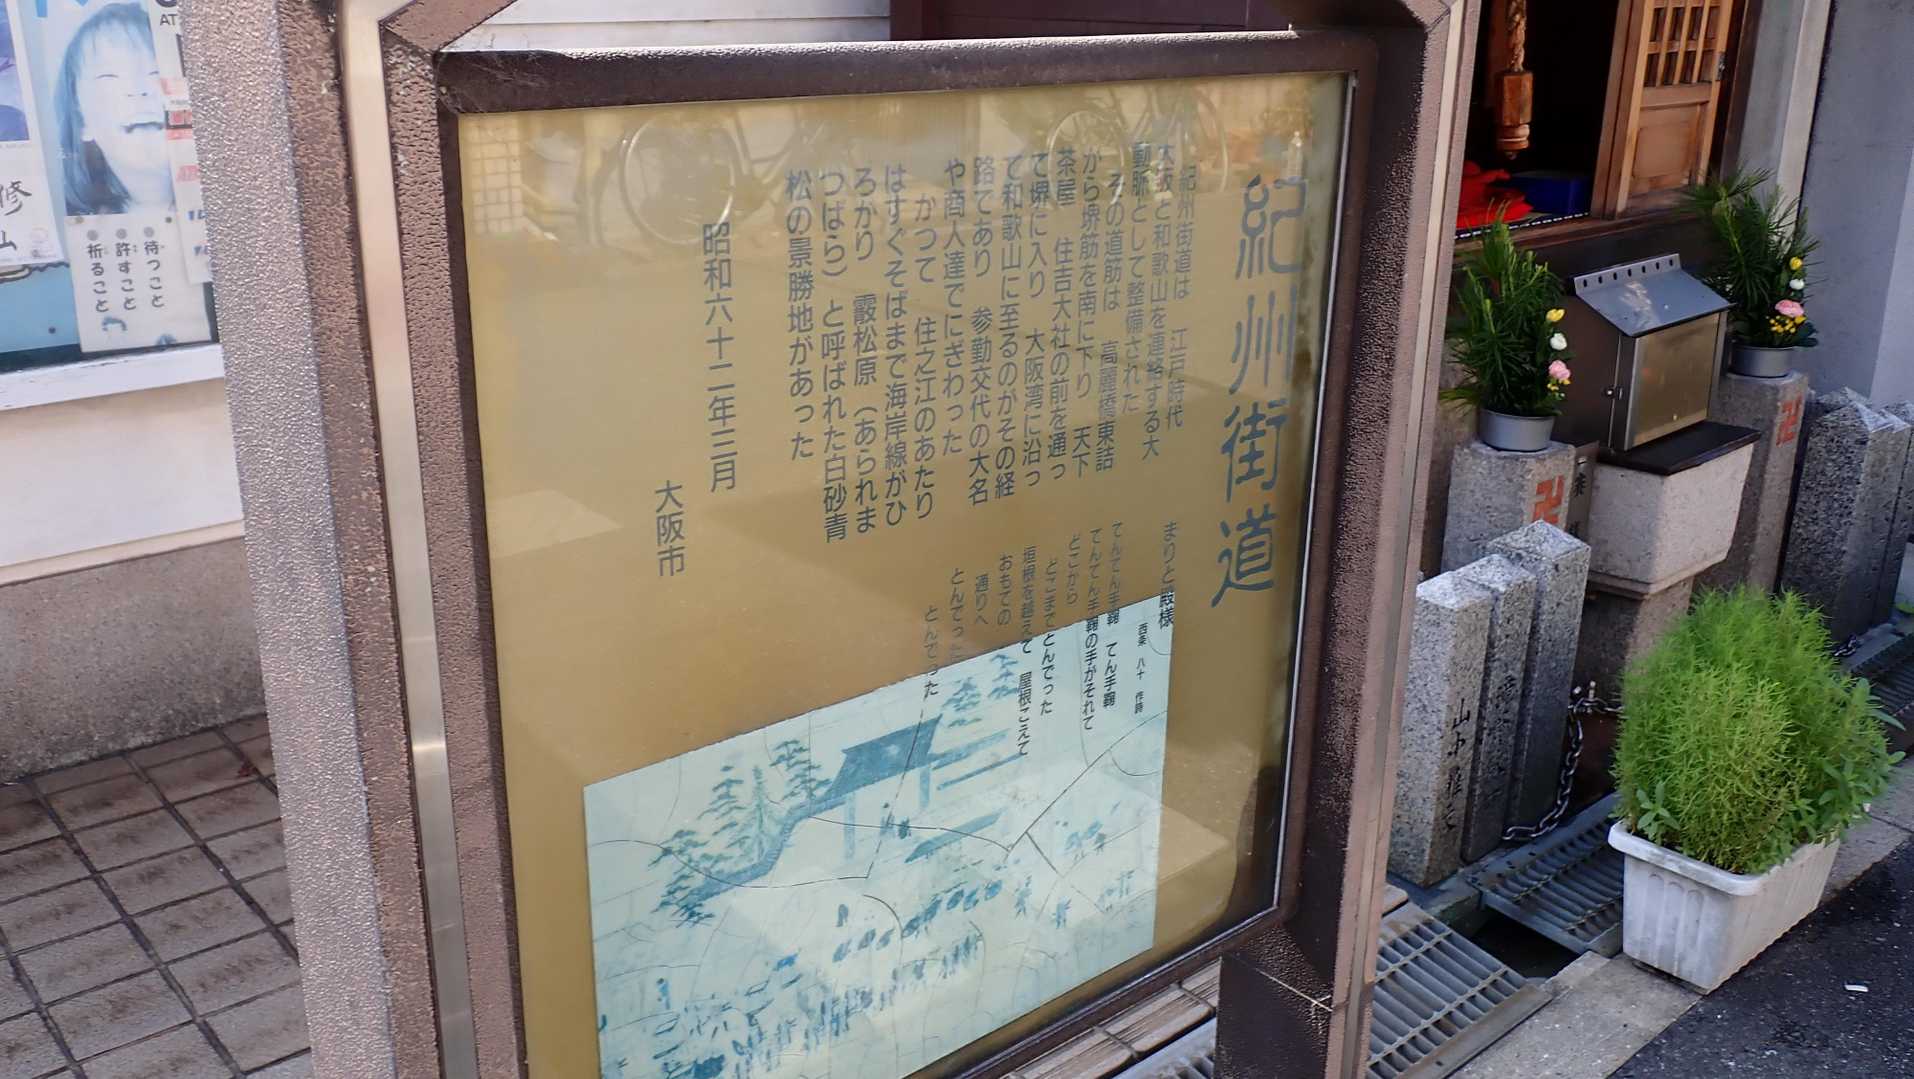 紀州街道
紀州街道は 江戸時代
大阪と和歌山を連絡する大
動脈として整備された
その道筋は 高麗橋東詰
から堺筋を南に下り 天下
茶屋 住吉大社の前を通っ
て堺に入り 大阪湾に沿っ
て和歌山に至るのがその経
路であり 参勤交代の大名
や商人達でにぎわった
かつて 住之江のあたり
はすぐそばまで海岸線がひ
ろがり 霰松原（あられま
つばら）と呼ばれた白砂青
松の景勝地があった
昭和六十二年三月
大阪市
まりと殿様
西条 八十 作詩
てんてん手鞠 てん手鞠
てんてん手鞠の手がそれて
どこから
どこまでとんでった
垣根を越えて 屋根こえて
おもての
通りへ
とんでった
とんでった
待つこと
許すこと
祈ること
修
山